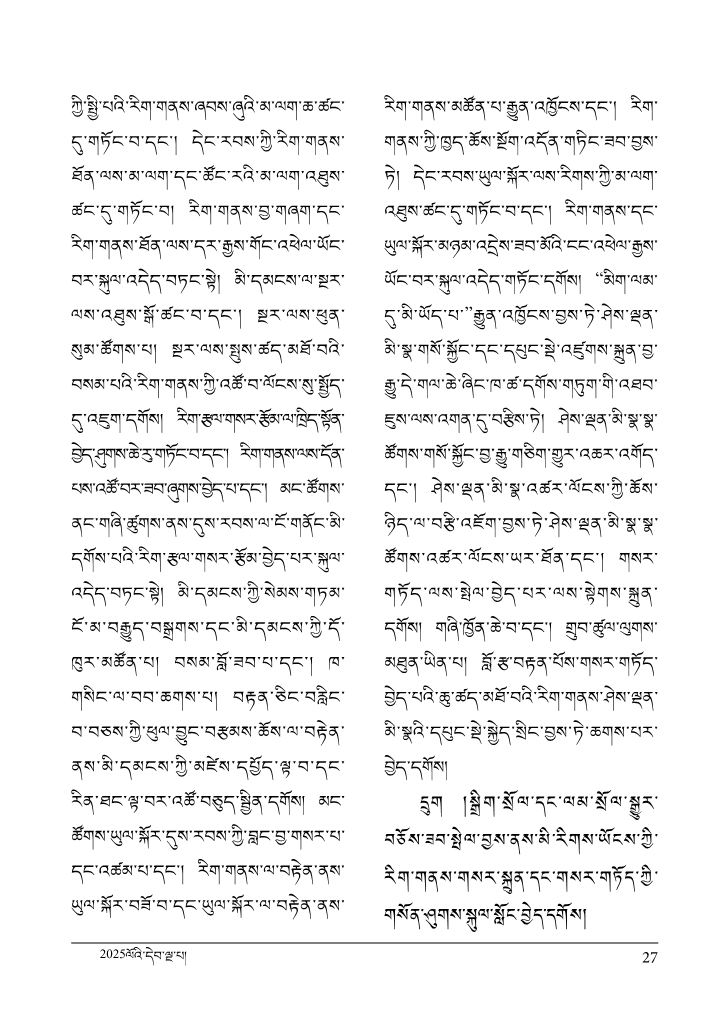 ཀྱི་སྤྱི་པའི་རིག་གནས་ཞབས་ཞུའི་མ་ལག་ཆ་ཚང་
དུ་གཏོང་བ་དང་། དེང་རབས་ཀྱི་རིག་གནས་
ཐོན་ལས་མ་ལག་དང་ཚོང་རའི་མ་ལག་འཐུས་
ཚང་དུ་གཏོང་བ། རིག་གནས་བྱ་གཞག་དང་
རིག་གནས་ཐོན་ལས་དར་རྒྱས་གོང་འཕེལ་ཡོང་
བར་སྐུལ་འདེད་བཏང་སྟེ། མི་དམངས་ལ་སྔར་
ལས་འཐུས་སྒོ་ཚང་བ་དང་། སྔར་ལས་ཕུན་
སུམ་ཚོགས་པ། སྔར་ལས་སྤུས་ཚད་མཐོ་བའི་
བསམ་པའི་རིག་གནས་ཀྱི་འཚོ་བ་ལོངས་སུ་སྤྱོད་
དུ་འཇུག་དགོས། རིག་རྩལ་གསར་རྩོམ་ལ་ཁྲིད་སྟོན་
བྱེད་ཤུགས་ཆེ་རུ་གཏོང་བ་དང་། རིག་གནས་ལས་དོན་
པས་འཚོ་བར་ཟབ་ཞུགས་བྱེད་པ་དང་། མང་ཚོགས་
ནང་གཞི་ཚུགས་ནས་དུས་རབས་ལ་ངོ་གནོང་མི་
དགོས་པའི་རིག་རྩལ་གསར་རྩོམ་བྱེད་པར་སྐུལ་
འདེད་བཏང་སྟེ། མི་དམངས་ཀྱི་སེམས་གཏམ་
ངོ་མ་བརྒྱུད་བསྒྲགས་དང་མི་དམངས་ཀྱི་དོ་
ཁུར་མཚོན་པ། བསམ་བློ་ཟབ་པ་དང་། ཁ་
གསིང་ལ་བབ་ཆགས་པ། བརྟན་ཅིང་བརླིང་
བ་བཅས་ཀྱི་ཕུལ་བྱུང་བརྩམས་ཆོས་ལ་བརྟེན་
ནས་མི་དམངས་ཀྱི་མཛེས་དཔྱོད་ལྟ་བ་དང་
རིན་ཐང་ལྟ་བར་འཚོ་བཅུད་སྦྱིན་དགོས། མང་
ཚོགས་ཡུལ་སྐོར་དུས་རབས་ཀྱི་བླང་བྱ་གསར་པ་
དང་འཚམ་པ་དང་། རིག་གནས་ལ་བརྟེན་ནས་
ཡུལ་སྐོར་བཟོ་བ་དང་ཡུལ་སྐོར་ལ་བརྟེན་ནས་
རིག་གནས་མཚོན་པ་རྒྱུན་འཁྱོངས་དང་། རིག་
གནས་ཀྱི་ཁྱད་ཆོས་སྔོག་འདོན་གཏིང་ཟབ་བྱས་
ཏེ། དེང་རབས་ཡུལ་སྐོར་ལས་རིགས་ཀྱི་མ་ལག་
འཐུས་ཚང་དུ་གཏོང་བ་དང་། རིག་གནས་དང་
ཡུལ་སྐོར་མཉམ་འདྲེས་ཟབ་མོའི་ངང་འཕེལ་རྒྱས་
ཡོང་བར་སྐུལ་འདེད་གཏོང་དགོས། “མིག་ལམ་
དུ་མི་ཡོད་པ་”རྒྱུན་འཁྱོངས་བྱས་ཏེ་ཤེས་ལྡན་
མི་སྣ་གསོ་སྐྱོང་དང་དཔུང་སྡེ་འཛུགས་སྐྲུན་བྱ་
རྒྱུ་དེ་གལ་ཆེ་ཞིང་ཁ་ཚ་དགོས་གཏུག་གི་འཐབ་
ཇུས་ལས་འགན་དུ་བརྩིས་ཏེ། ཤེས་ལྡན་མི་སྣ་སྣ་
ཚོགས་གསོ་སྐྱོང་བྱ་རྒྱུ་གཅིག་གྱུར་འཆར་འགོད་
དང་། ཤེས་ལྡན་མི་སྣ་འཚར་ལོངས་ཀྱི་ཆོས་
ཉིད་ལ་བརྩི་འཇོག་བྱས་ཏེ་ཤེས་ལྡན་མི་སྣ་སྣ་
ཚོགས་འཚར་ལོངས་ཡར་ཐོན་དང་། གསར་
གཏོད་ལས་སྤེལ་བྱེད་པར་ལས་སྟེགས་སྐྲུན་
དགོས། གཞི་ཁྱོན་ཆེ་བ་དང་། གྲུབ་ཚུལ་ལུགས་
མཐུན་ཡིན་པ། བློ་རྩ་བརྟན་པོས་གསར་གཏོད་
བྱེད་པའི་ཆུ་ཚད་མཐོ་བའི་རིག་གནས་ཤེས་ལྡན་
མི་སྣའི་དཔུང་སྡེ་སྐྱེད་སྲིང་བྱས་ཏེ་ཆགས་པར་
བྱེད་དགོས།
དྲུག །སྒྲིག་སྲོལ་དང་ལམ་སྲོལ་སྒྱུར་
བཅོས་ཟབ་སྤེལ་བྱས་ནས་མི་རིགས་ཡོངས་ཀྱི་
རིག་གནས་གསར་སྐྲུན་དང་གསར་གཏོད་ཀྱི་
གསོན་ཤུགས་སྐུལ་སློང་བྱེད་དགོས།
2025ལོའི་དེབ་ལྔ་པ། 27